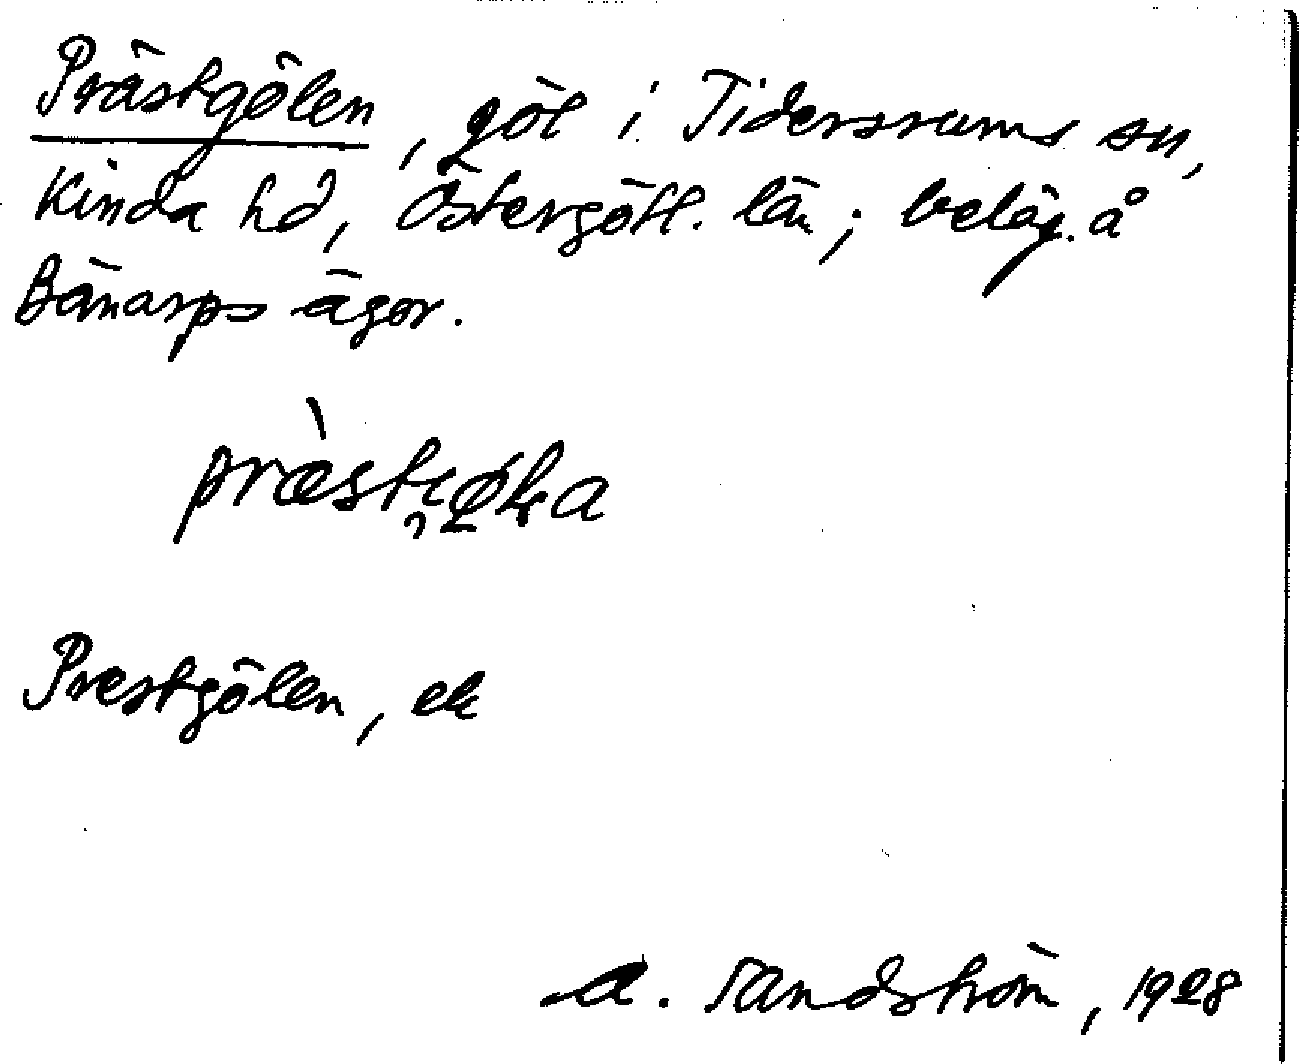 Prästgölen, göl i Tidersrums sn,
Kinda hd, Östergötl. län; beläg. å
Bänarps ägor.
Prestgölen, ek
A. Sandström, 1928